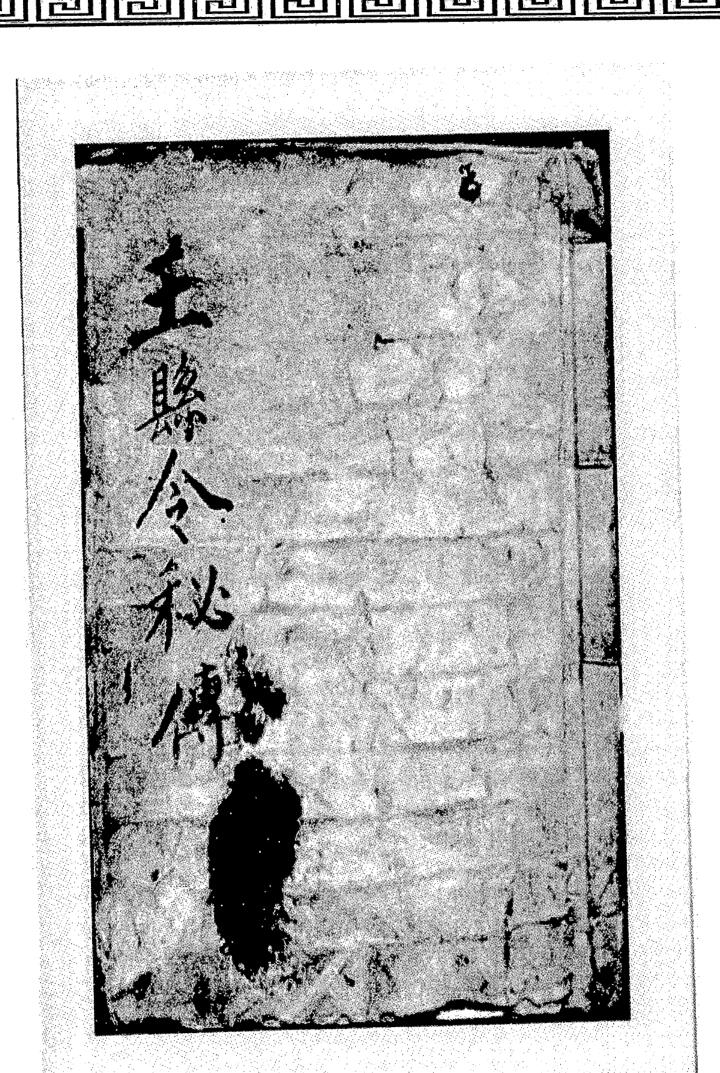 王縣令秘傳